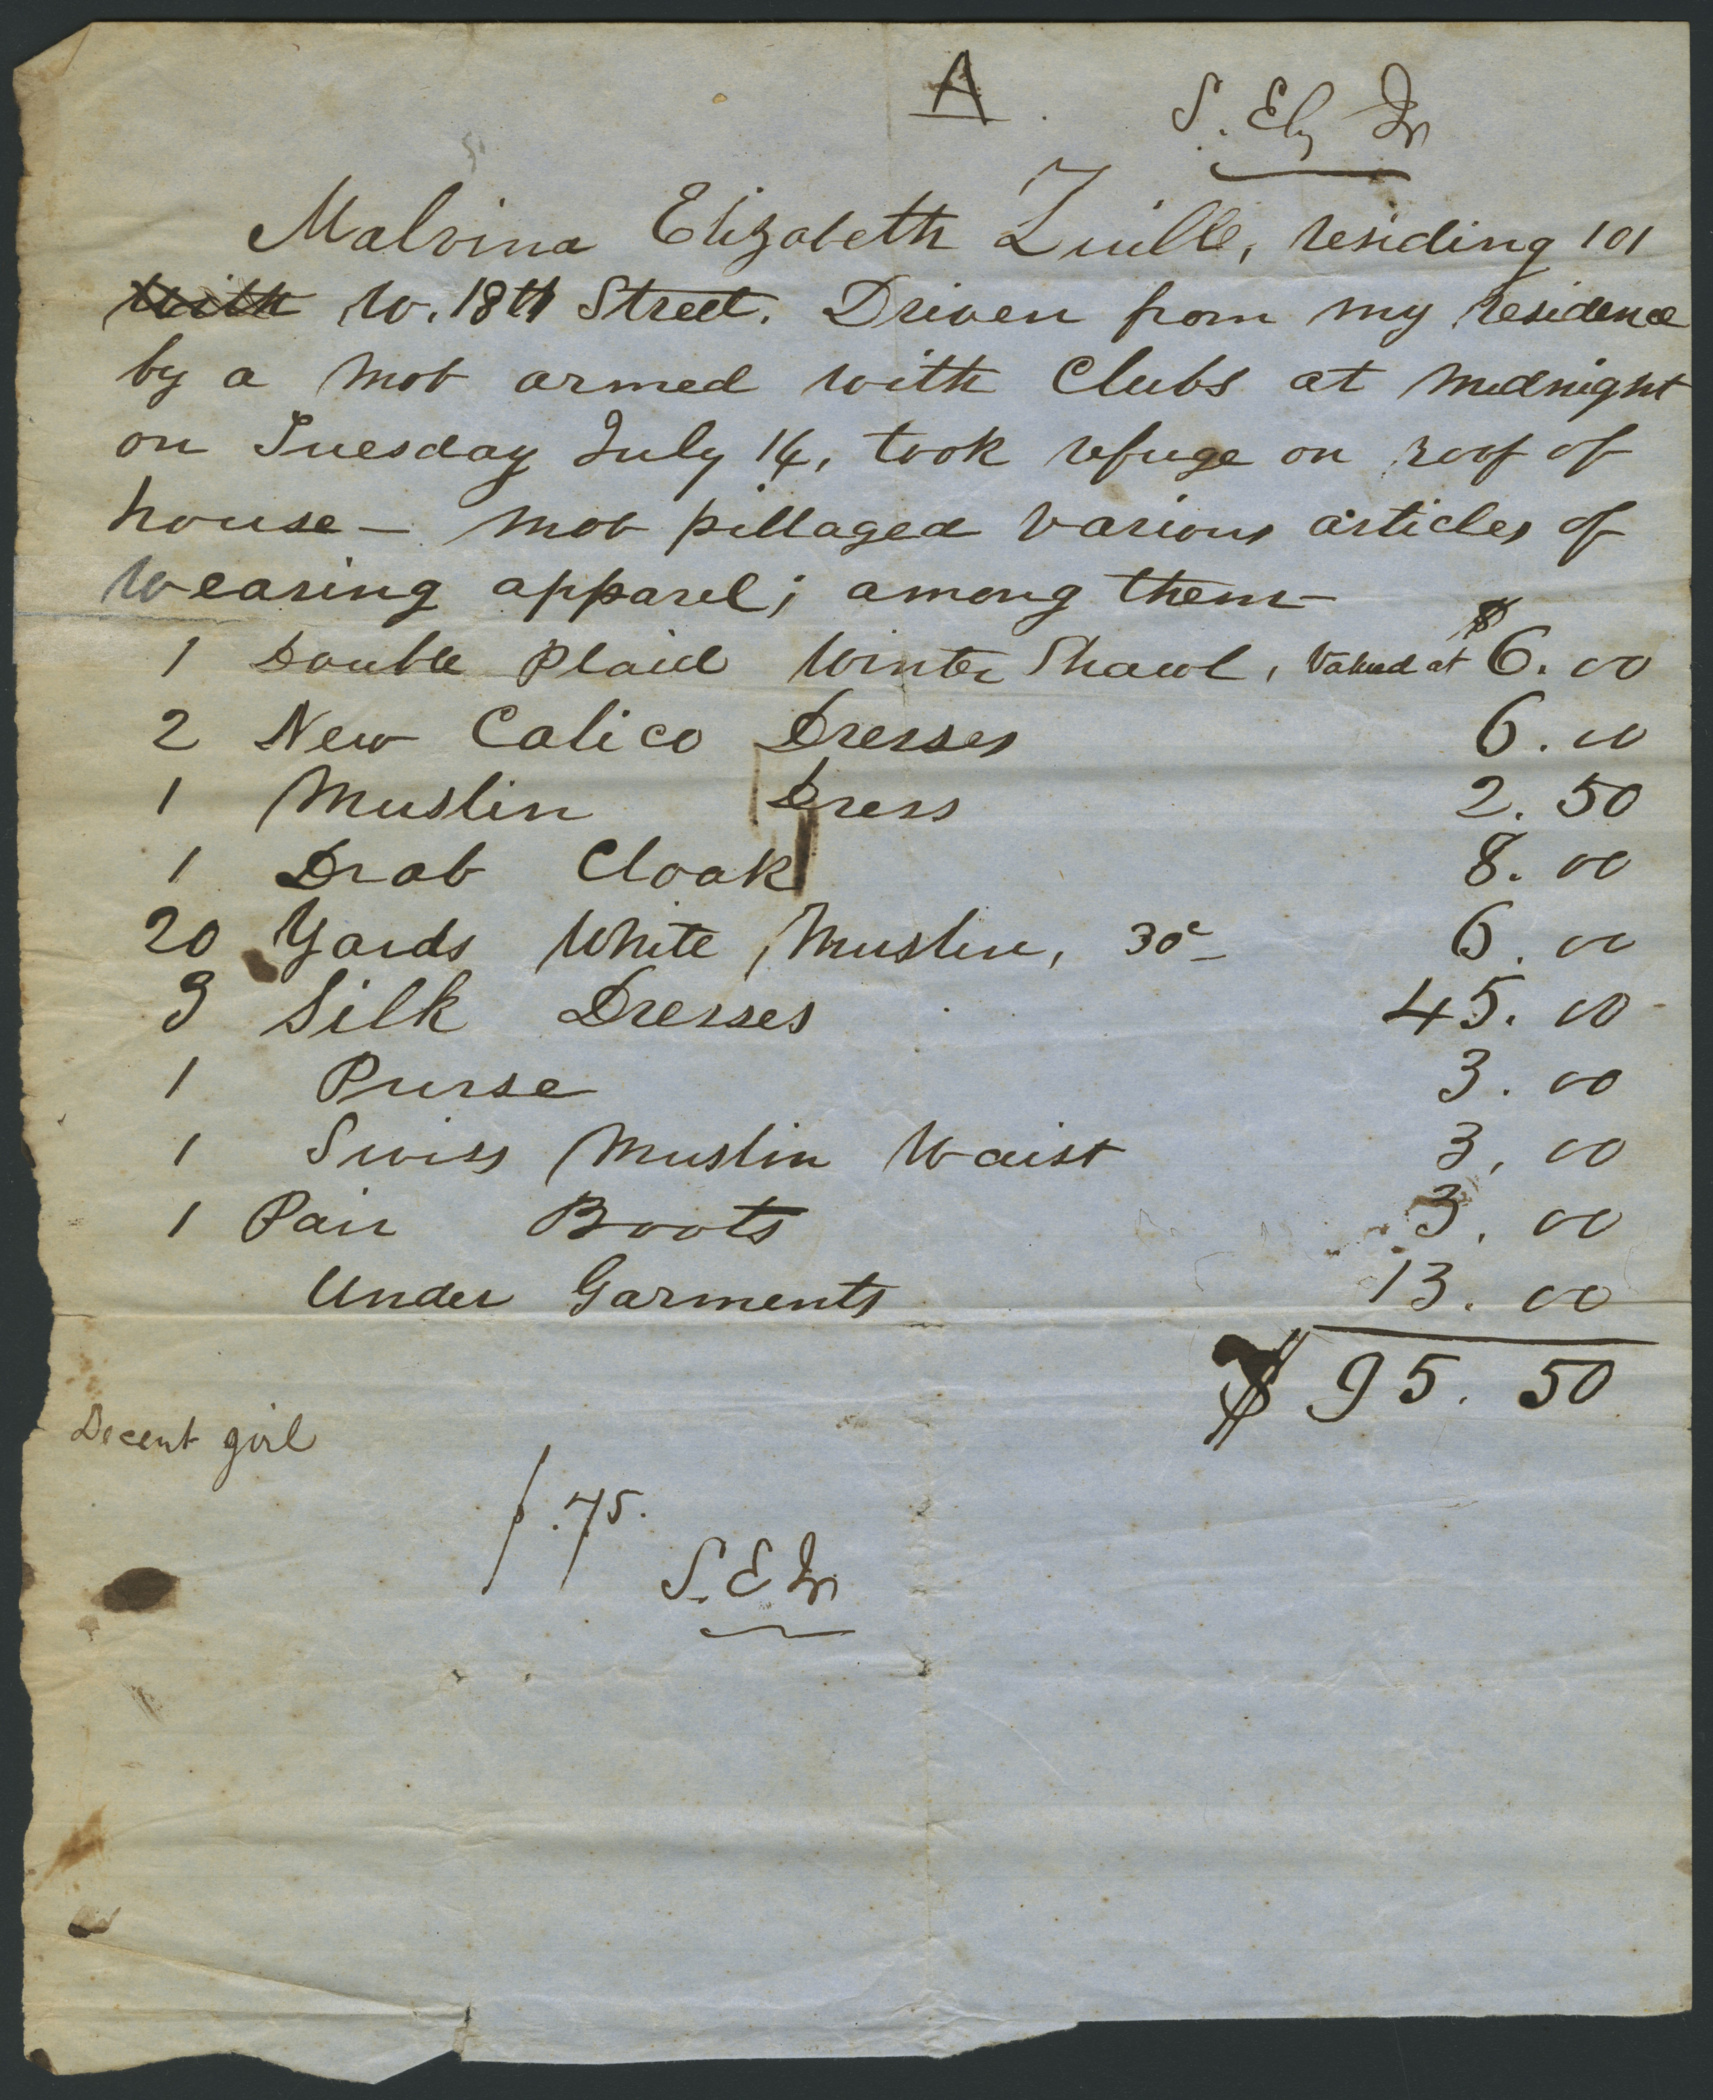 A.
S. Ely Jr
Malvina Elizabeth Zuille, residing 101
with W. 18th Street. Driven from my residence
by a mob armed with Clubs at midnight
on Tuesday July 14, took refuge on roof of
house — mob pillaged various articles of
Wearing apparel; among them —
1 Double Plaid Winter Shawl, Valued at $6.00
2 New Calico Dresses 6.00
1 Muslin Dress 2.50
1 Drab Cloak 8.00
20 Yards White Muslin, 30c 6.00
3 Silk Dresses 45.00
1 Purse 3.00
1 Swiss Muslin Waist 3.00
1 Pair Boots 3.00
Under Garments 13.00
$95.50
Decent girl
$.75.
S. E Jr